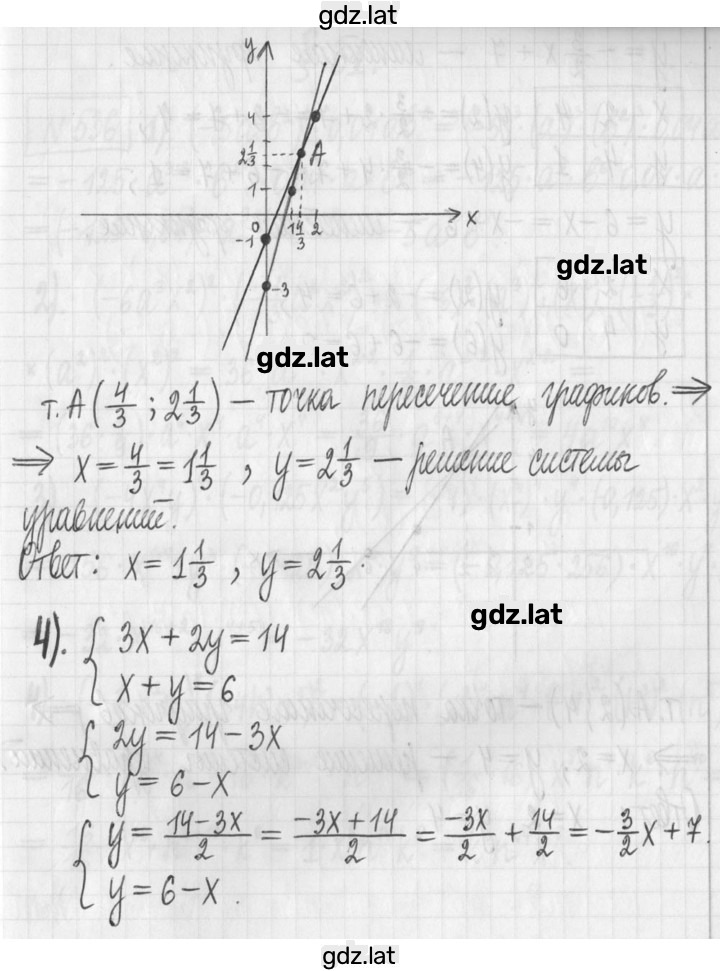 gdz.lat
y
4
2 1/3
A
1
0
1 4/3 2
x
-1
-3
gdz.lat
gdz.lat
т. A (4/3 ; 2 1/3) – точка пересечение графиков. ⇒
⇒ x = 4/3 = 1 1/3 , y = 2 1/3 – решение системы
уравнений.
Ответ: x = 1 1/3 , y = 2 1/3 .
gdz.lat
4). { 3x + 2y = 14
x + y = 6
{ 2y = 14 - 3x
y = 6 - x
{ y = (14-3x)/2 = (-3x+14)/2 = -3x/2 + 14/2 = -3/2 x + 7.
y = 6 - x .
gdz.lat